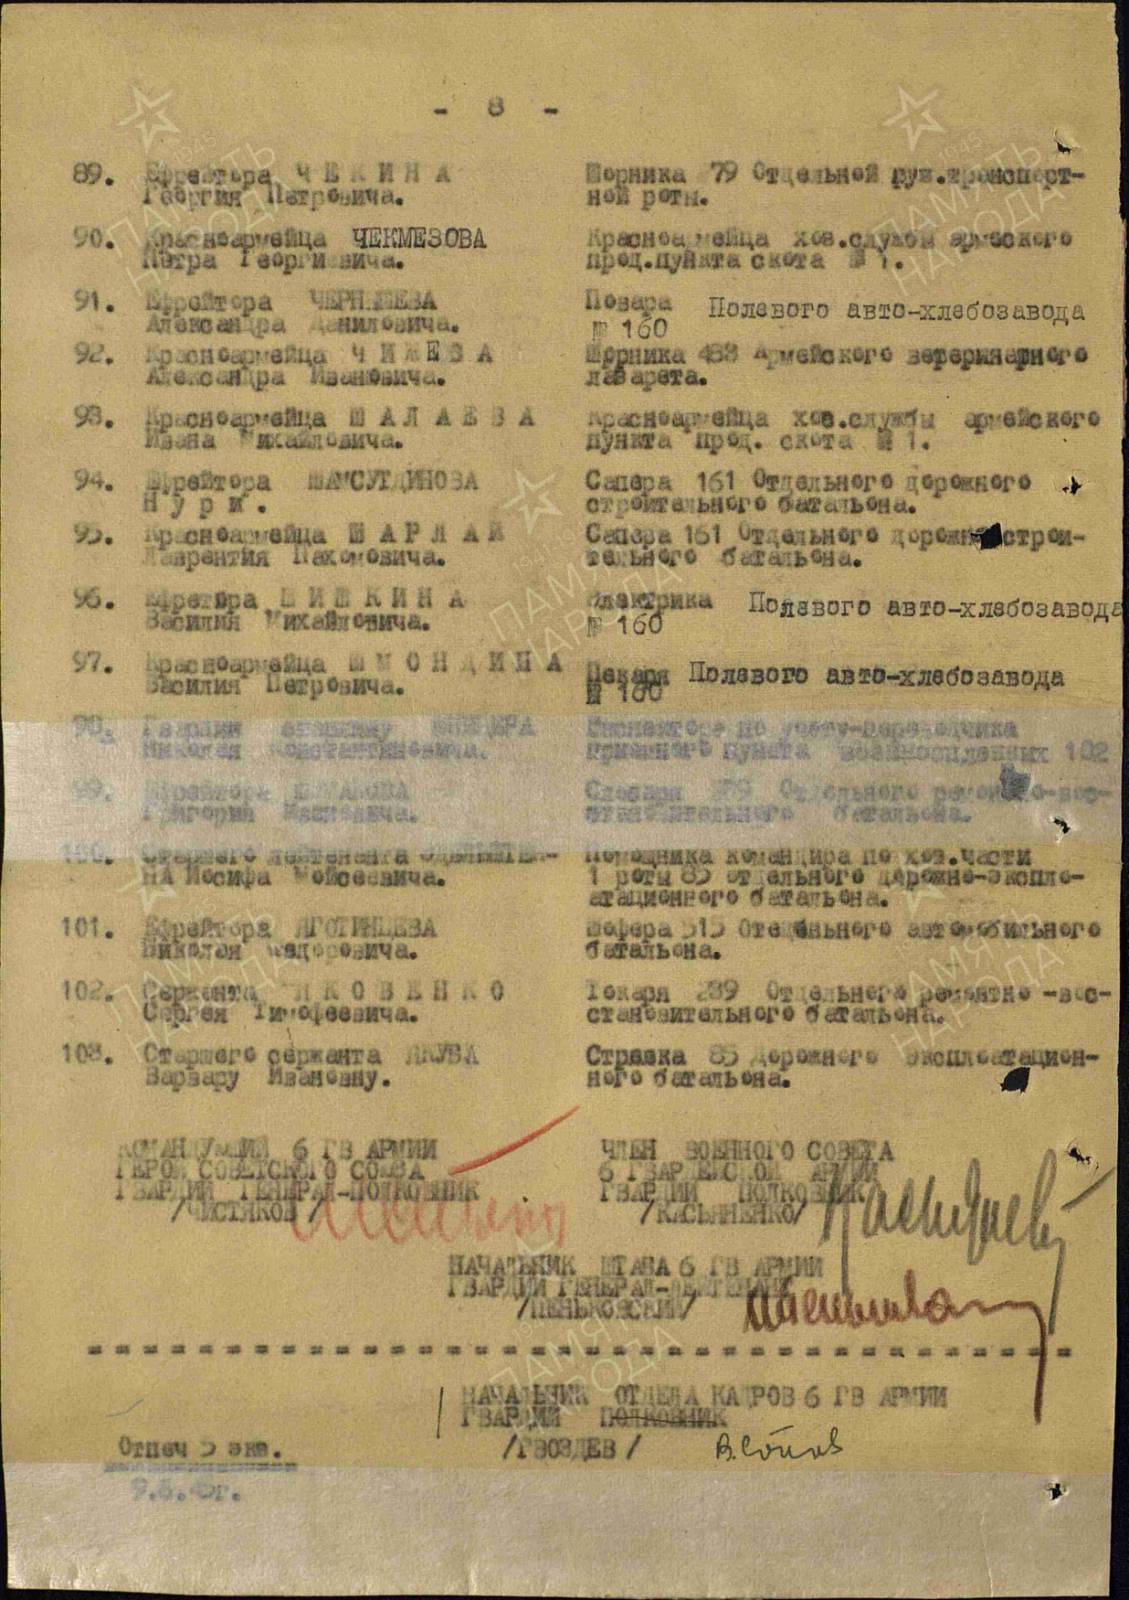 - 8 -
89. Ефрейтора ЧЕКИНА Шорника 79 Отдельной гуж.транспорт-
Георгия Петровича. ной роты.
90. Красноармейца ЧЕКМЕЗОВА Красноармейца хоз.службы армеского
Петра Георгиевича. прод.пункта скота № 1.
91. Ефрейтора ЧЕРНЫШЕВА Повара Полевого авто-хлебозавода
Александра Даниловича. № 160
92. Красноармейца ЧИЖЕВА Шорника 488 Армейского ветеринарного
Александра Ивановича. лазарета.
93. Красноармейца ШАЛАЕВА Красноармейца хоз.службы армейского
Ивана Михайловича. пункта прод. скота № 1.
94. Ефрейтора ШАМСУТДИНОВА Сапера 161 Отдельного дорожного
Нури. строительного батальона.
95. Красноармейца ШАРЛАЙ Сапера 161 Отдельного дорожно строи-
Лаврентия Пахомовича. тельного батальона.
96. Ефретора ШИШКИНА Электрика Полевого авто-хлебозавода
Василия Михайловича. № 160
97. Красноармейца ШМОНДИНА Пекаря Полевого авто-хлебозавода
Василия Петровича. № 160
98. Гвардии старшину Инспектора по учету-переводчика
Николая Константиновича. приемного пункта военнопленных 102
99. Ефрейтора Слесаря Отдельного ремонтно-вос-
Григория становительного батальона.
100. Старшего лейтенанта ЭДЕЛЬШТЕЙ- Помощника командира по хоз.части
НА Иосифа Мойсеевича. 1 роты 85 отдельного дорожно-эксплo-
атационного батальона.
101. Ефрейтора ЯГОТИНЦЕВА Шофера 515 Отедельного автомобильного
Николая Федоровича. батальона.
102. Сержанта ЯКОВЕНКО Токаря 289 Отдельного ремонтно-вос-
Сергея Тимофеевича. становительного батальона.
103. Старшего сержанта ЯКУБА Стрелка 85 Дорожного эксплоатацион-
Варвару Ивановну. ного батальона.
КОМАНДУЮЩИЙ 6 ГВ АРМИИ ЧЛЕН ВОЕННОГО СОВЕТА
ГЕРОЙ СОВЕТСКОГО СОЮЗА 6 ГВАРДЕЙСКОЙ АРМИИ
ГВАРДИИ ГЕНЕРАЛ-ПОЛКОВНИК ГВАРДИИ ПОЛКОВНИК
/ЧИСТЯКОВ/ /КАСЬЯНЕНКО/
НАЧАЛЬНИК ШТАБА 6 ГВ АРМИИ
ГВАРДИИ ГЕНЕРАЛ-ЛЕЙТЕНАНТ
/ПЕНЬКОВСКИЙ/
НАЧАЛЬНИК ОТДЕЛА КАДРОВ 6 ГВ АРМИИ
ГВАРДИИ ПОЛКОВНИК
/ГВОЗДЕВ/
Отпеч 5 экз.
9.6.45г.